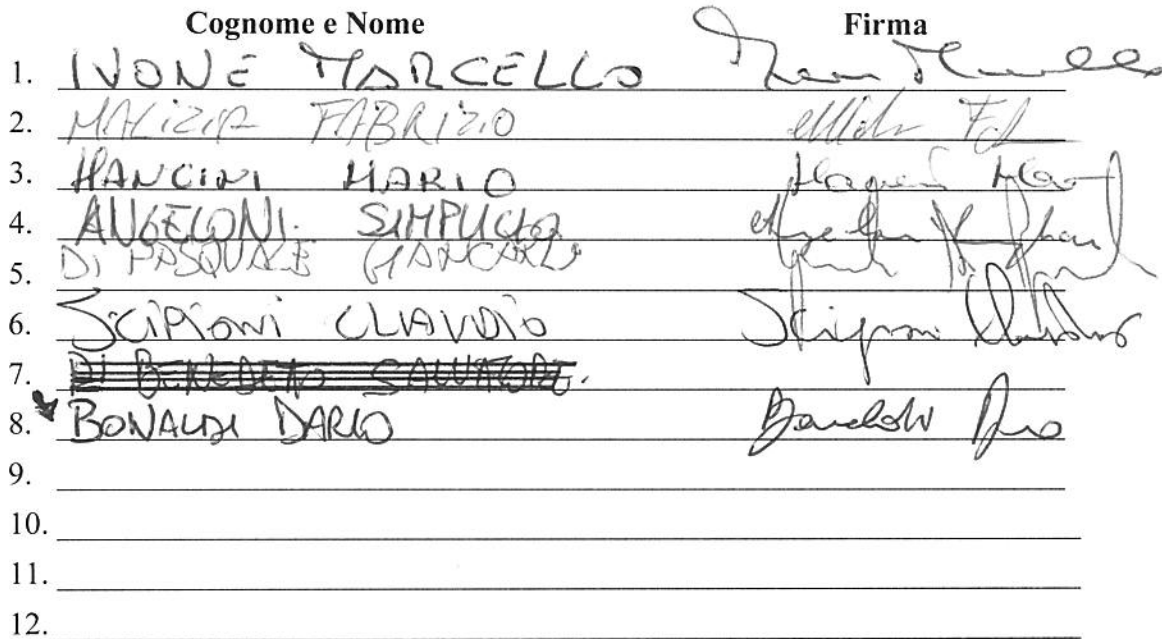 Cognome e Nome Firma
1. IVONE MARCELLO
2. MALIZIA FABRIZIO
3. MANCINI MARIO
4. ANGELONI SIMPLICIO
5. DI PASQUALE GIANCARLO
6. SCIPIONI CLAUDIO Scipioni Claudio
7. DI BENEDETTO SALVATORE.
8. BONALDI DARIO
9.
10.
11.
12.